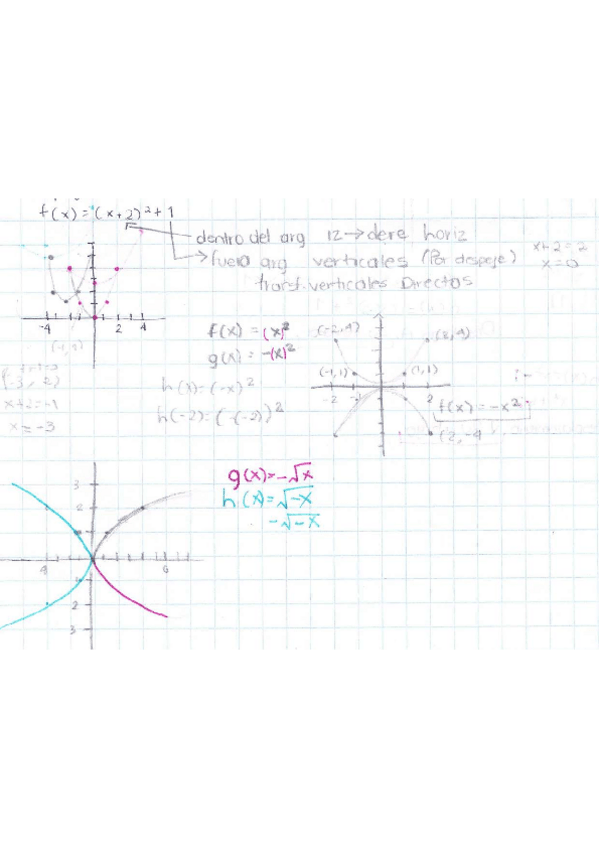 f(x)=(x+2)²+1
dentro del arg IZ→dere horiz
fuera arg verticales (Por despeje)
transf. verticales Directos
x+2=2
x=0
-4 2 4
(-3, 2)
x+2=-1
x=-3
f(x) = (x)²
g(x) = -(x)²
h(x)=(-x)²
h(-2)=(-(-2))²
(-2,4)
(-1,1) (1,1)
-2 -1 2
f(x)=-x²
(2,-4
g(x)=-√x
h(x)=√-x
-√-x
3
2
6
2
3